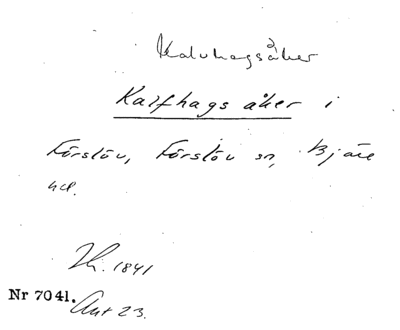 Kalvhagsåker
Kalfhags åker i
Förslöv, Förslöv sn, Bjäre
hd.
Zh. 1841
Nr 7041. Akt 23.